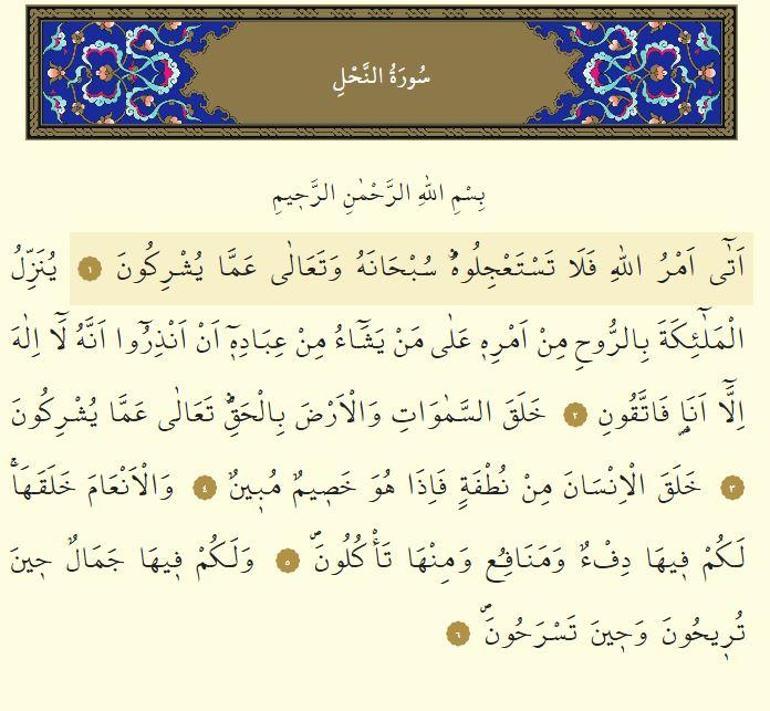 سُورَةُ النَّحْلِ
بِسْمِ اللهِ الرَّحْمٰنِ الرَّحٖيمِ
اَتٰٓى اَمْرُ اللهِ فَلَا تَسْتَعْجِلُوهُؕ سُبْحَانَهُ وَتَعَالٰى عَمَّا يُشْرِكُونَ ١ يُنَزِّلُ
الْمَلٰٓئِكَةَ بِالرُّوحِ مِنْ اَمْرِهٖ عَلٰى مَنْ يَشَٓاءُ مِنْ عِبَادِهٖٓ اَنْ اَنْذِرُٓوا اَنَّهُ لَٓا اِلٰهَ
اِلَّٓا اَنَا۬ فَاتَّقُونِ ٢ خَلَقَ السَّمٰوَاتِ وَالْاَرْضَ بِالْحَقِّؕ تَعَالٰى عَمَّا يُشْرِكُونَ
٣ خَلَقَ الْاِنْسَانَ مِنْ نُطْفَةٍ فَاِذَا هُوَ خَصٖيمٌ مُبٖينٌ ٤ وَالْاَنْعَامَ خَلَقَهَاۚ
لَكُمْ فٖيهَا دِفْءٌ وَمَنَافِعُ وَمِنْهَا تَأْكُلُونَۖ ٥ وَلَكُمْ فٖيهَا جَمَالٌ حٖينَ
تُرٖيحُونَ وَحٖينَ تَسْرَحُونَۖ ٦